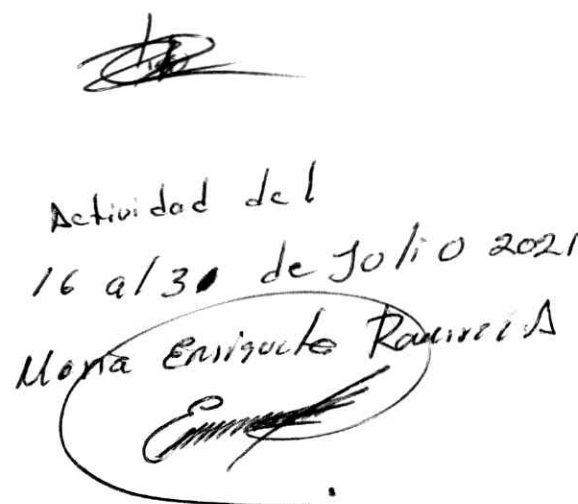 Actividad del
16 al 30 de Julio 2021
Maria Enriqueta Ramirez A